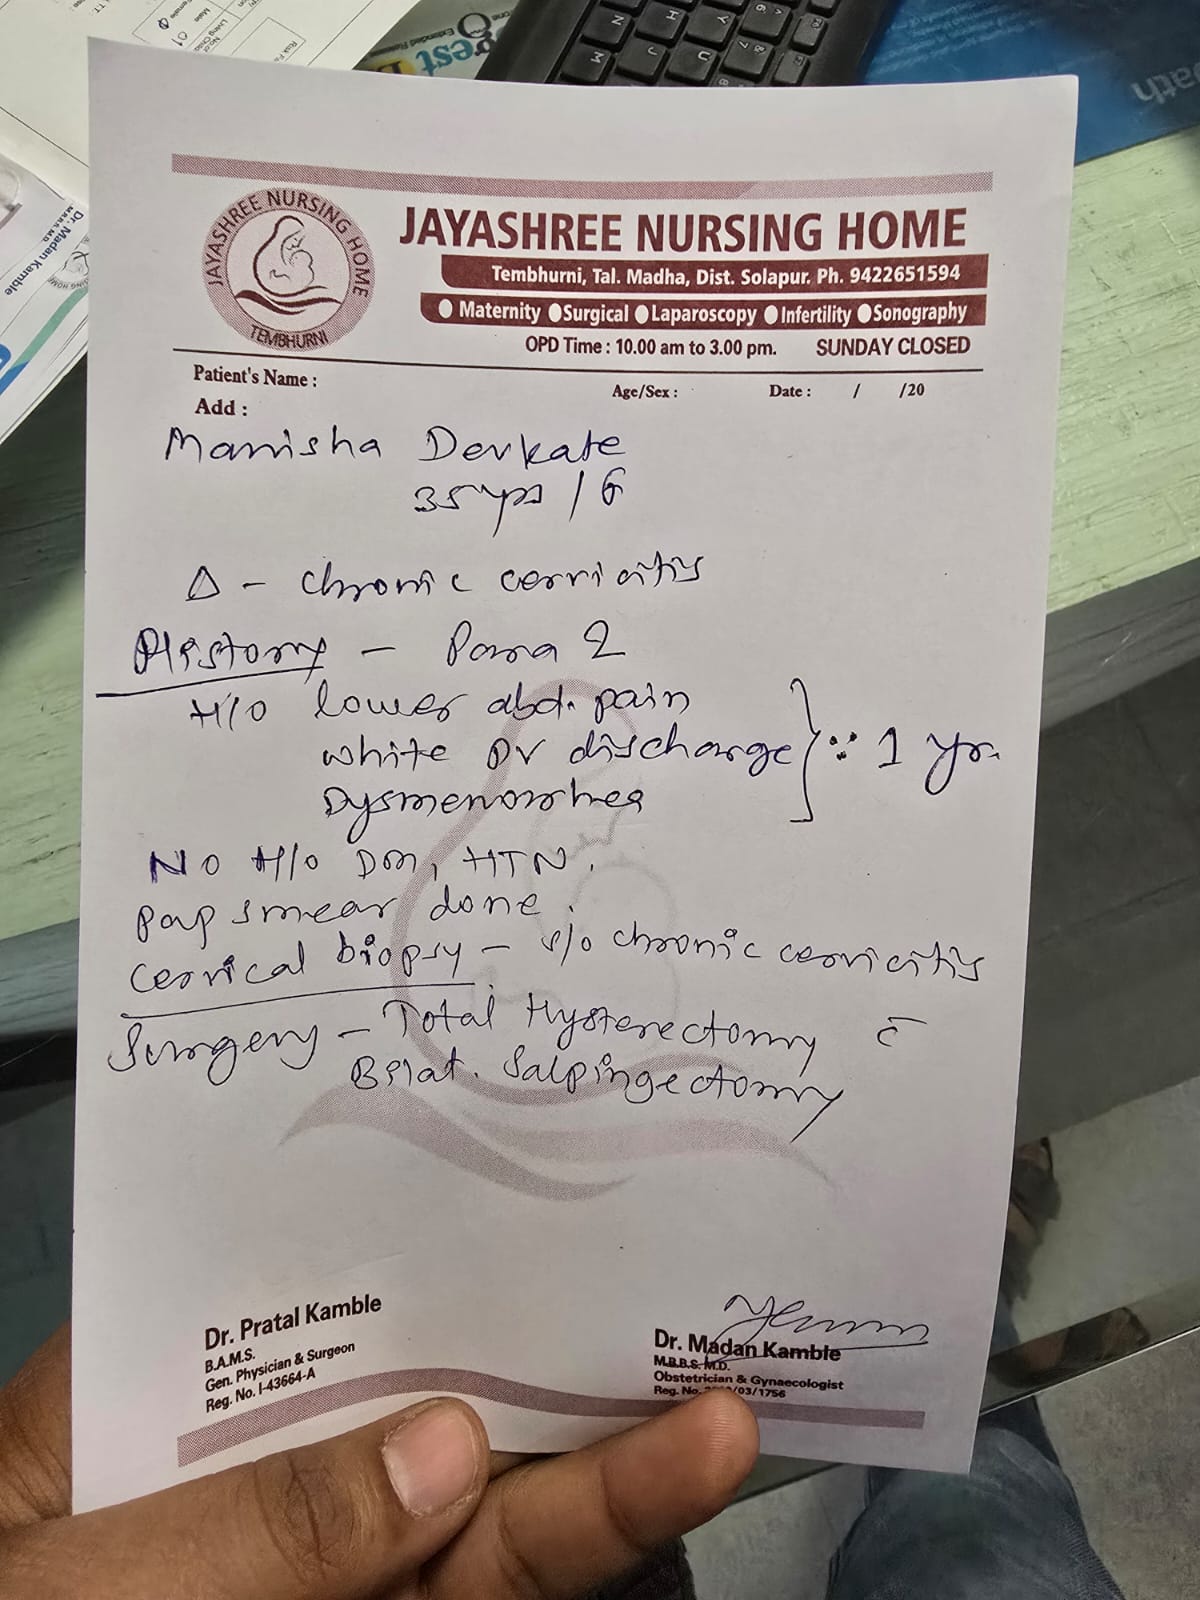 JAYASHREE NURSING HOME
TEMBHURNI
JAYASHREE NURSING HOME
Tembhurni, Tal. Madha, Dist. Solapur. Ph. 9422651594
Maternity Surgical Laparoscopy Infertility Sonography
OPD Time : 10.00 am to 3.00 pm. SUNDAY CLOSED
Patient's Name :
Age/Sex : Date : / /20
Add :
Manisha Devkate
35yrs / F
Δ - Chronic cervicitis
History - Para 2
H/O lower abd. pain
white PV discharge } ∵ 1 yr.
Dysmenorrhea
NO H/O DM, HTN.
Pap smear done.
Cervical biopsy - s/o chronic cervicitis
Surgery - Total Hysterectomy c̄
Bilat. Salpingectomy
Dr. Pratal Kamble
B.A.M.S.
Gen. Physician & Surgeon
Reg. No. I-43664-A
Dr. Madan Kamble
M.B.B.S. M.D.
Obstetrician & Gynaecologist
Reg. No. /03/1756
Dr. Madan Kamble